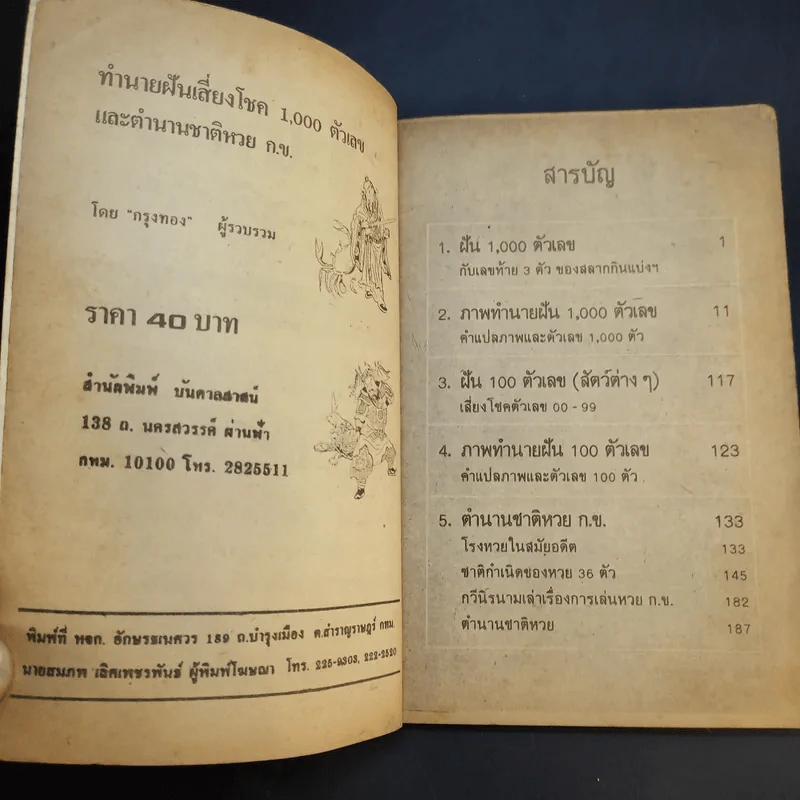 ทำนายฝันเสี่ยงโชค 1,000 ตัวเลข
และตำนานชาติหวย ก.ข.
โดย "กรุงทอง" ผู้รวบรวม
ราคา 40 บาท
สำนักพิมพ์ บันดาลสาสน์
138 ถ. นครสวรรค์ ผ่านฟ้า
กทม. 10100 โทร. 2825511
พิมพ์ที่ หจก. อักษรธเนศวร 189 ถ.บำรุงเมือง ต.สำราญราษฎร์ กทม.
นายสมภพ เลิศเพชรพันธ์ ผู้พิมพ์โฆษณา โทร. 225-9303, 222-2520
สารบัญ
1. ฝัน 1,000 ตัวเลข 1
กับเลขท้าย 3 ตัว ของสลากกินแบ่งฯ
2. ภาพทำนายฝัน 1,000 ตัวเลข 11
คำแปลภาพและตัวเลข 1,000 ตัว
3. ฝัน 100 ตัวเลข (สัตว์ต่าง ๆ) 117
เสี่ยงโชคตัวเลข 00 - 99
4. ภาพทำนายฝัน 100 ตัวเลข 123
คำแปลภาพและตัวเลข 100 ตัว
5. ตำนานชาติหวย ก.ข. 133
โรงหวยในสมัยอดีต 133
ชาติกำเนิดของหวย 36 ตัว 145
กวีนิรนามเล่าเรื่องการเล่นหวย ก.ข. 182
ตำนานชาติหวย 187